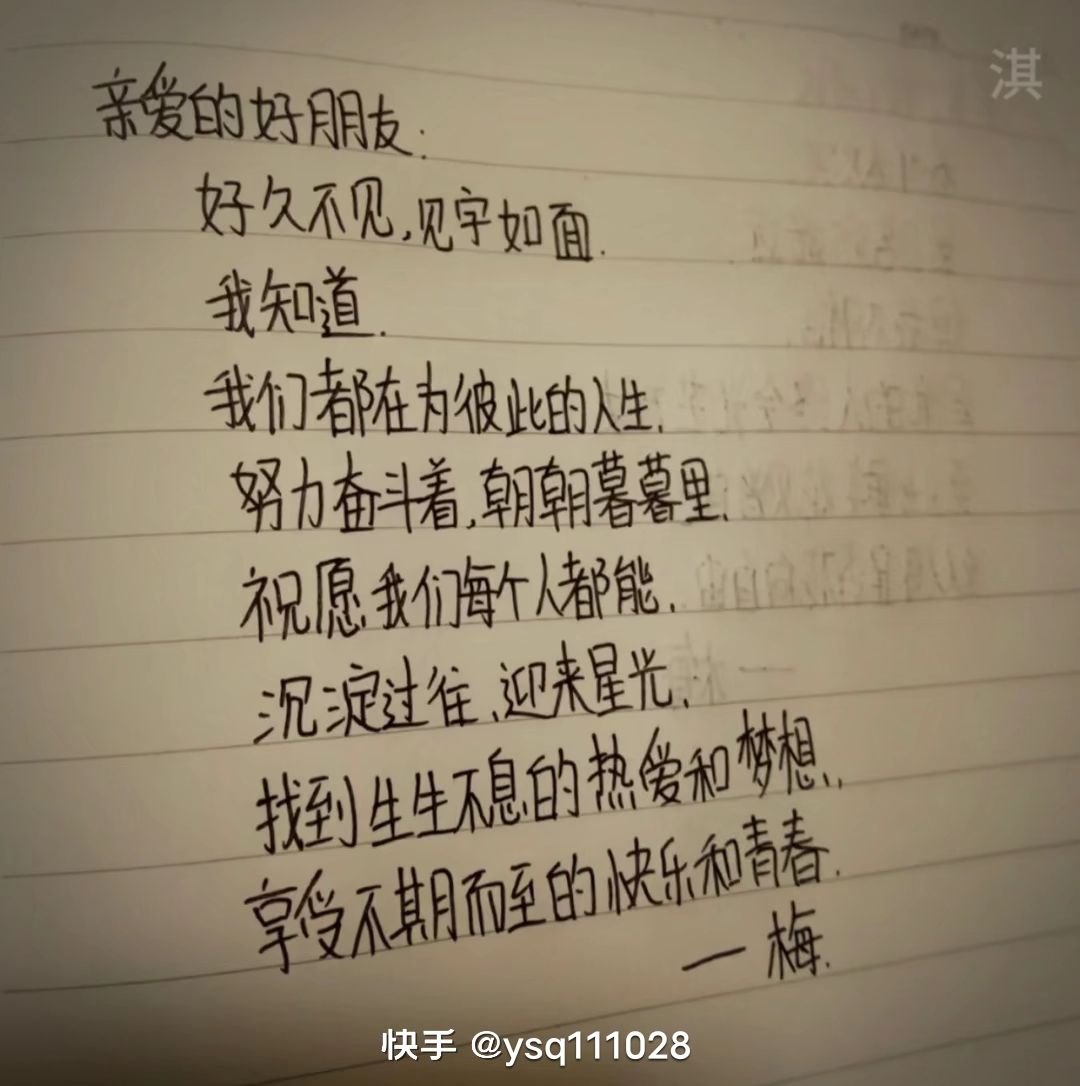 淇
亲爱的好朋友:
好久不见,见字如面.
我知道.
我们都在为彼此的人生.
努力奋斗着,朝朝暮暮里.
祝愿我们每个人都能.
沉淀过往,迎来星光.
找到生生不息的热爱和梦想..
享受不期而至的快乐和青春.
一梅.
快手 @ysq111028